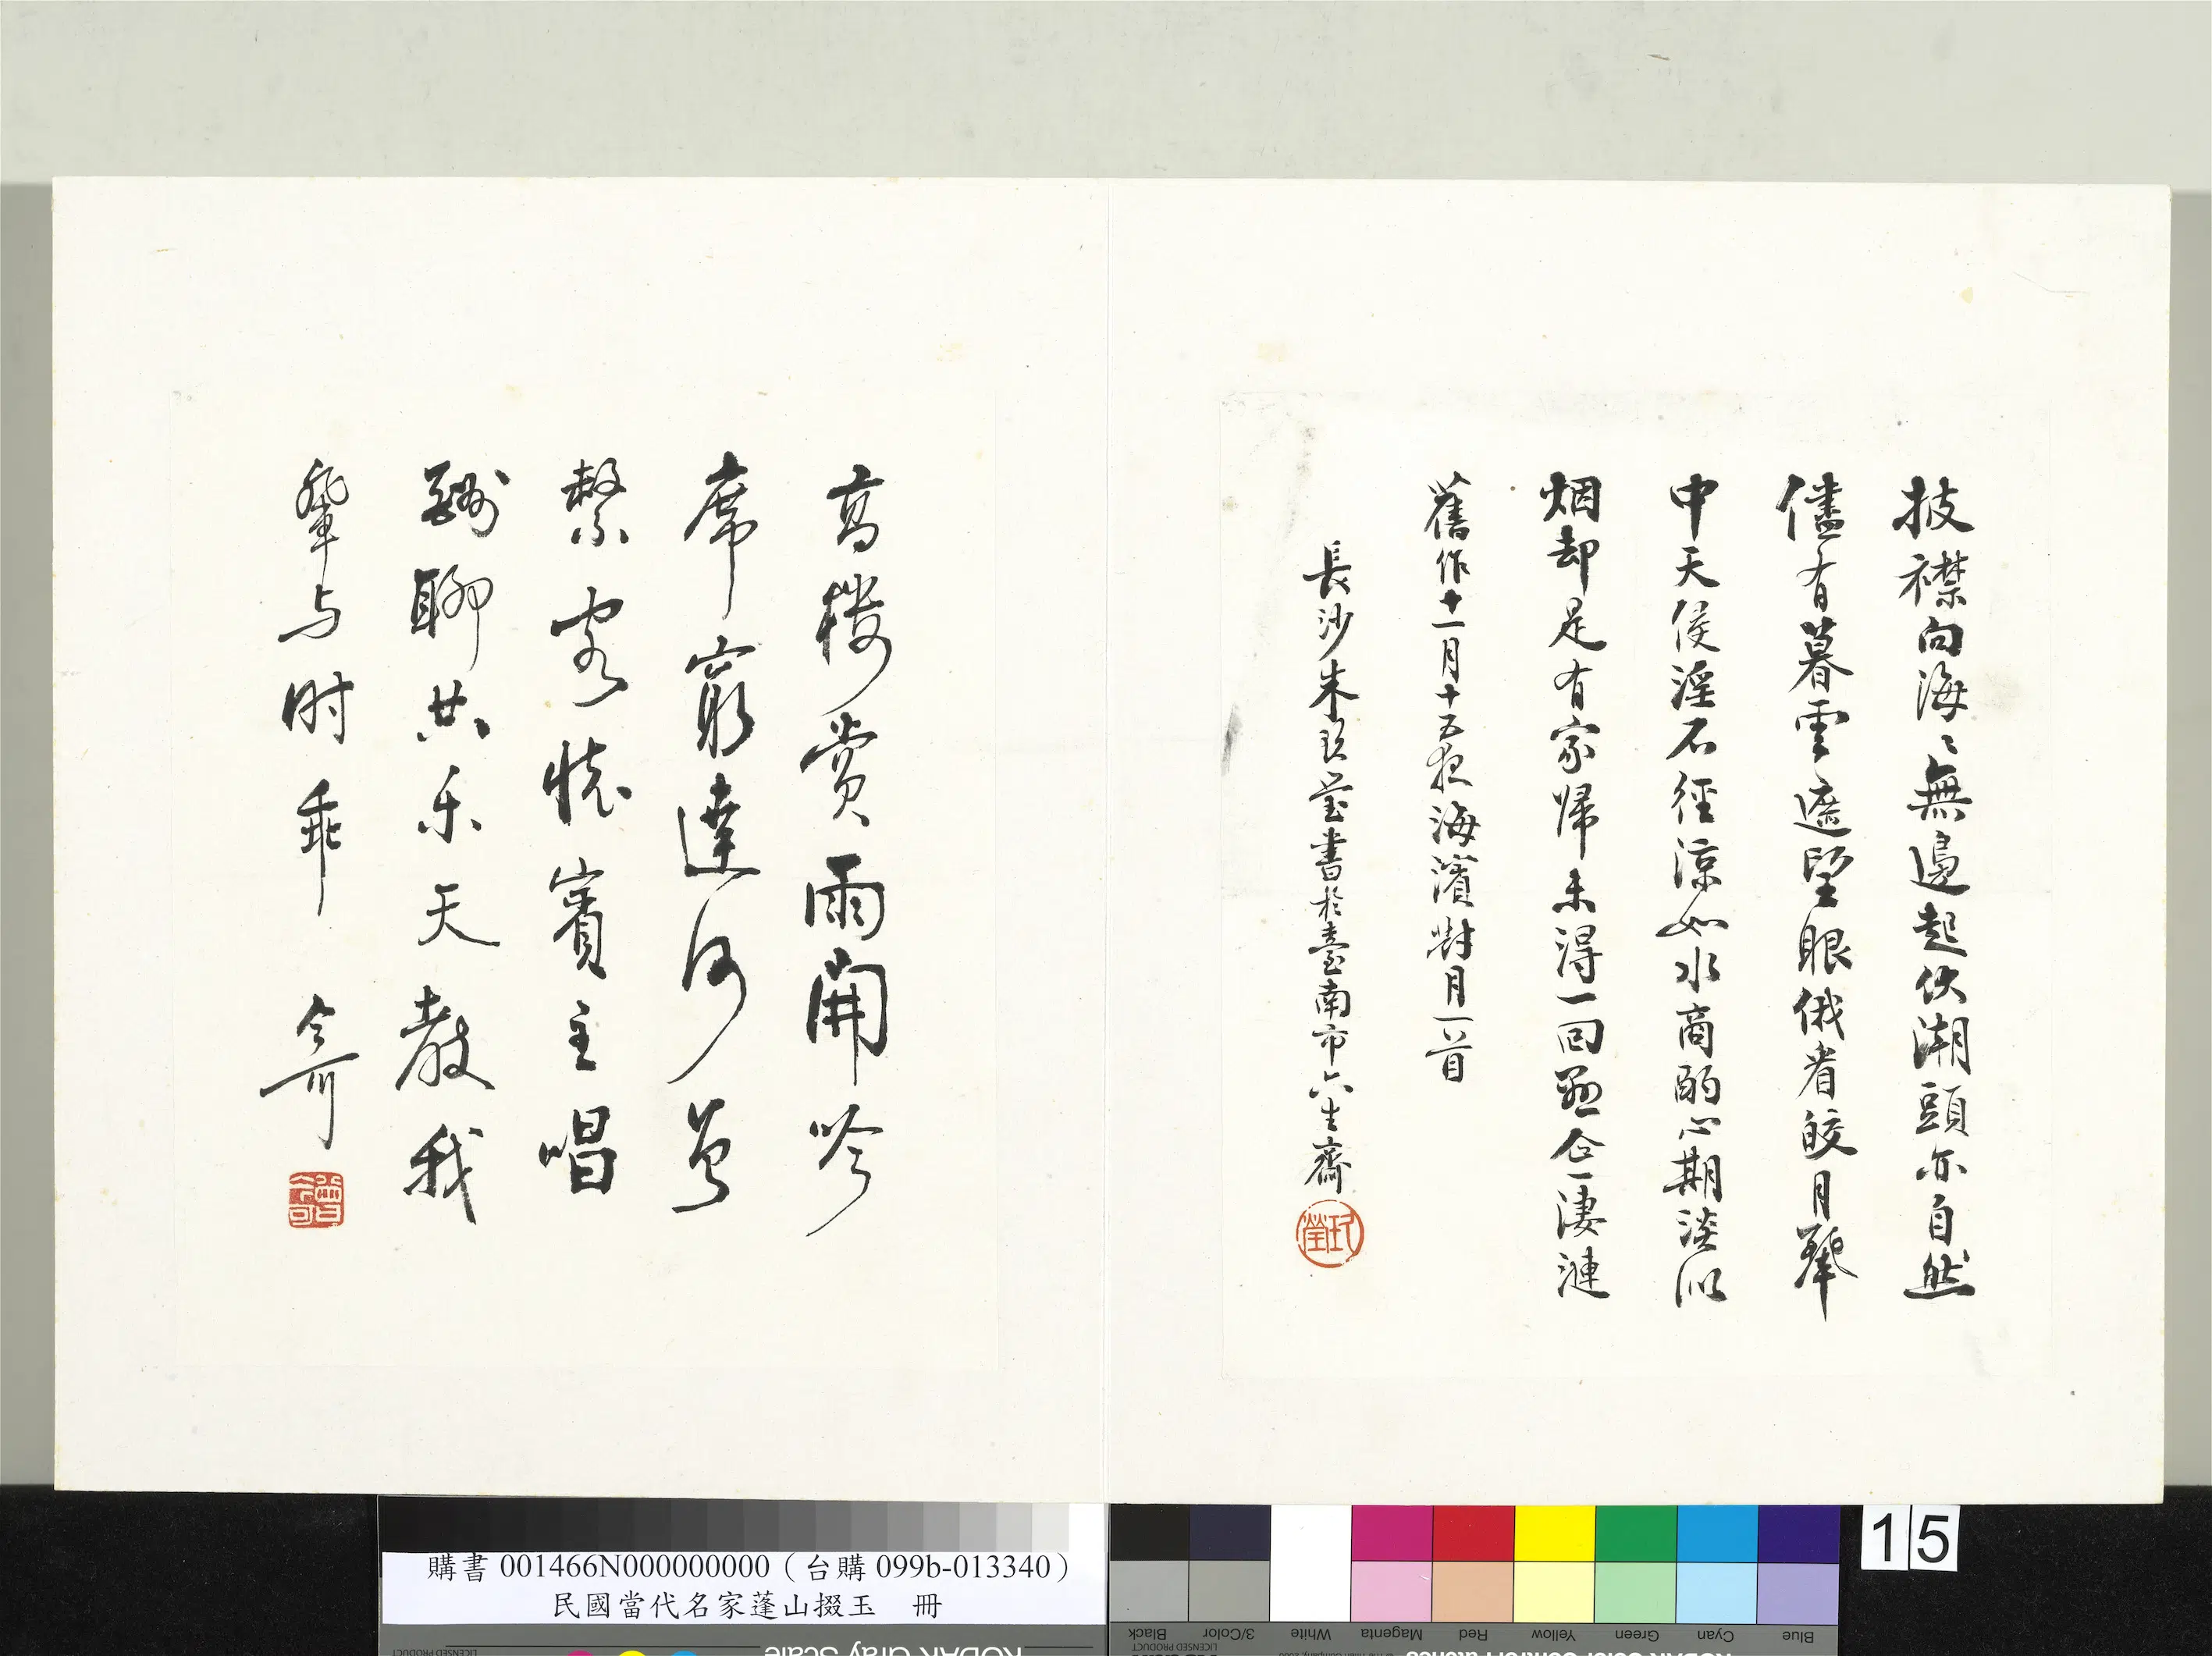 披襟向海〻無邊起伏潮頭亦自然
儘有暮雲遮望眼俄看皎月擎
中天侵淫石徑涼如水商酌心期淡似
烟却是有家歸未得一回一淒漣
舊作十一月十五夜海濱對月一首
長沙朱玖瑩書於臺南市六生齋
玖瑩
高樓賞雨開吟
席窮達何曾
繫客懷賓主唱
酬聊共乐天教我
輩与时乖 今可
曾今可
購書 001466N000000000（台購 099b-013340）
民國當代名家蓬山掇玉 冊
15
Black 3/Color White Magenta Red Yellow Green Cyan Blue
LICENSED PRODUCT
KODAK Gray Scale
LICENSED PRODUCT